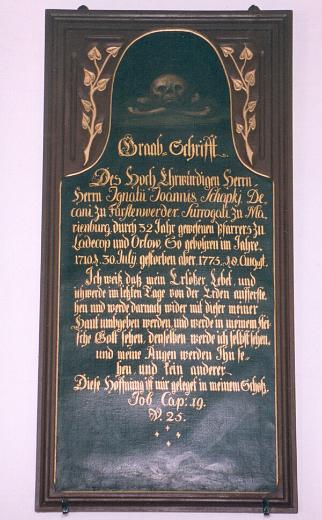 Graab-Schrifft
Des Hoch Ehrwürdigen Herrn
Herrn Ignatii Joannis Schopki, De-
cani zu Fürstenwerder, Surrogati zu Ma-
rienburg, durch 32 Jahr gewesenen Pfarrers zu
Ladecop und Orlow, So gebohren im Jahre.
1710. d. 30. July gestorben aber 1775. 18. Augst.
Ich weiß daß mein Erlöser Lebet, und
ich werde im letzten Tage von der Erden aufferste-
hen und werde darnach wider mit dieser meiner
Haut umbgeben werden, und werde in meinem flei-
sche Gott sehen, denselben werde ich selbst sehen,
und meine Augen werden Ihn se-
hen, und kein anderer.
Diese Hoffnung ist mir geleget in meinem Schoß.
Job Cap: 19.
V. 25.